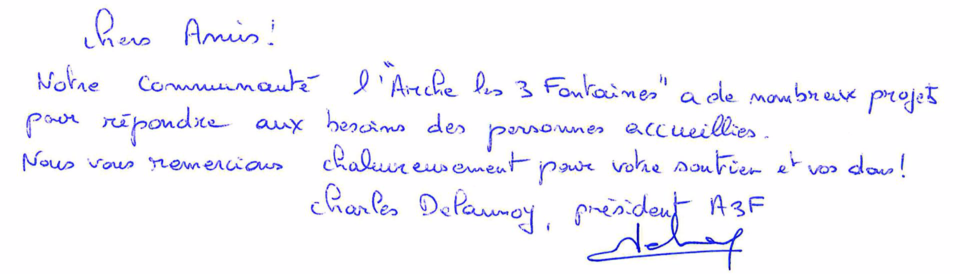 Chers Amis!
Notre Communauté l'"Arche les 3 Fontaines" a de nombreux projets
pour répondre aux besoins des personnes accueillies.
Nous vous remercions chaleureusement pour votre soutien et vos dons!
Charles Delaunoy, président A3F